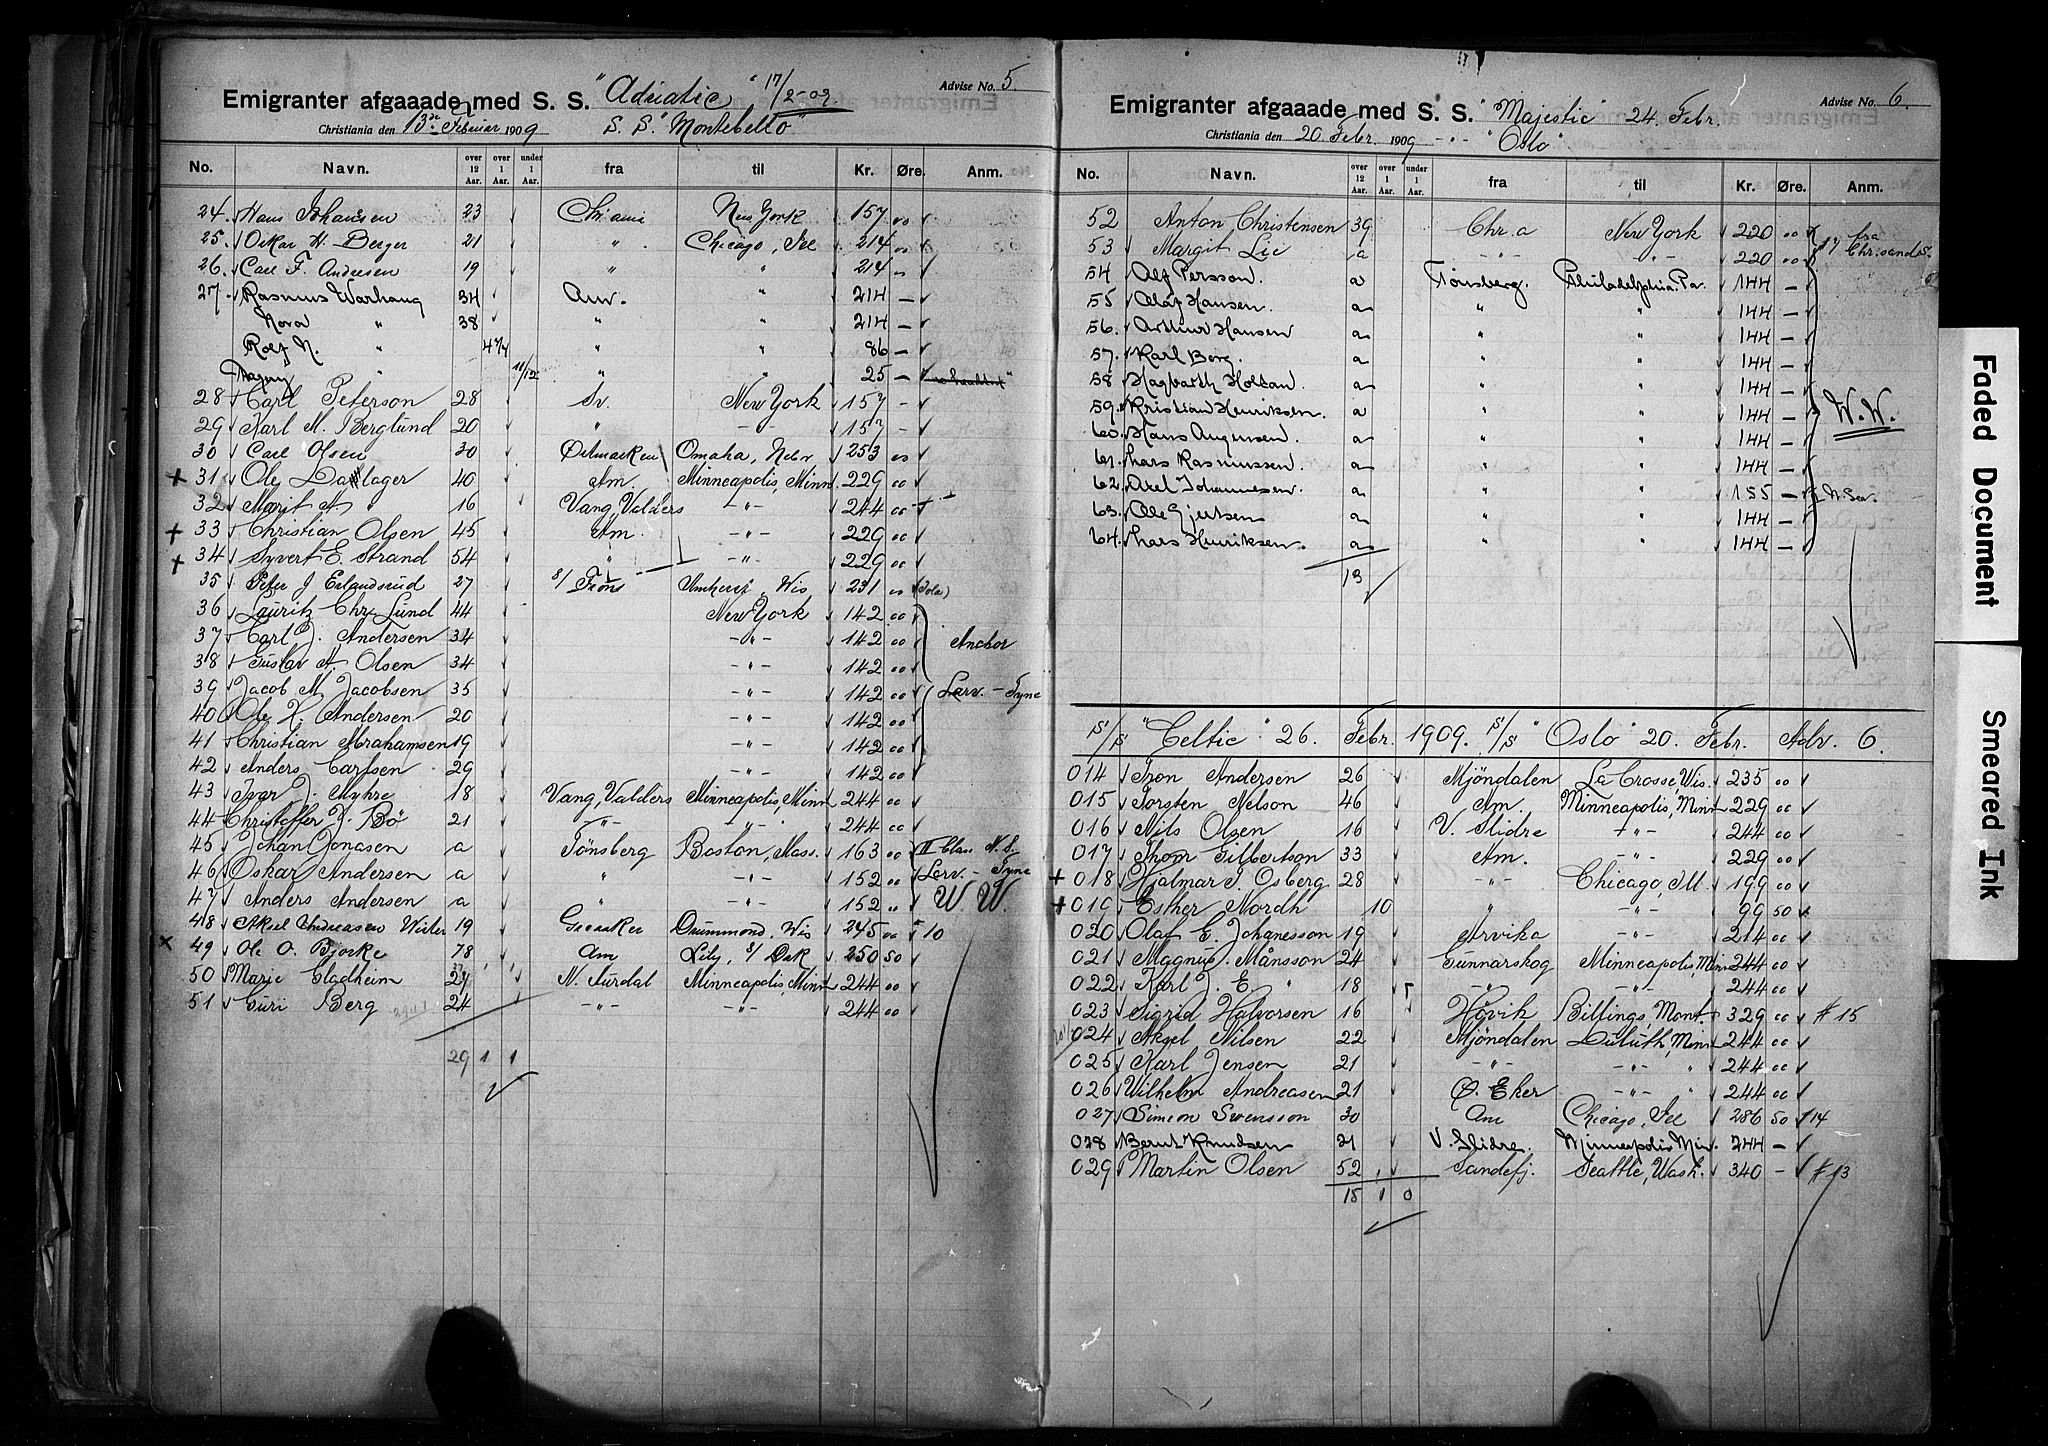 Emigranter afgaaade med S. S. "Adriatic" 17/2-09. Advise No. 5
Christiania den 13de Februar 1909 S. S. "Montebello"
No. Navn. over 12 Aar. over 1 Aar. under 1 Aar. fra til Kr. Øre. Anm.
24. Hans Johansen 23 Chriania New York 157 00
25. Oskar H. Berger 21 " Chicago, Ill 214 00
26. Carl F. Andresen 19 " " 214 00
27. Rasmus Warhaug 34 Am. " 214 —
Nora " 38 " " 214 —
Rolf N. " 4 3/4 " " 86 —
Magny " 11/12 " " 25 —
28 Carl Peterson 28 Sv. New York 157 -
29 Karl M. Berglund 20 " -"- 157 -
30 Carl Olsen 30 Ødemarken Omaha, Nebr 253 00
+ 31 Ole Dallager 40 Am. Minneapolis, Minn 229 00
32 Marit A. " 16 Vang, Valders -"- 244 00
+ 33 Christian Olsen 45 Am. -"- 229 00
+ 34 Syvert E. Strand 54 " -"- 229 00
35 Peter J Erlandsrud 27 S/ Frons Amherst, Wis 231 00 (Iola)
36 Lauritz Chr. Lund 44 New York 142 00
37 Carl J. Andersen 34 -"- 142 00 Anchor
38 Gustav A. Olsen 34 -"- 142 00
39 Jacob M. Jacobsen 35 -"- 142 00 Larv. - Tyne
40 Ole K. Andersen 20 -"- 142 00
41 Christian Abrahamsen 19 -"- 142 00
42 Anders Carlsen 29 -"- 142 00
43 Ivar J. Myhre 18 Vang, Valders Minneapolis, Minn 244 00
44 Christoffer J. Bö 21 -"- -"- 244 00
45 Johan Jonasen a Tönsberg Boston, Mass. 163 00 II Class N. S.
46 Oskar Andersen a " -"- 152 00 Larv. - Tyne
47 Anders Andersen a " -"- 152 " W W.
48 Aksel Andreasen Wister 19 Greaaker Drummond, Wis 245 00 10
x 49 Ole O. Bjorke 78 Am Lily, S/ Dak 250 50
50 Marie Gladheim 27 N. Aurdal Minneapolis, Minn 244 00
51 Guri Berg 24 -"- -"- 244 00
29 1 1
Emigranter afgaaade med S. S. "Majestic" 24. Febr. Advise No. 6.
Christiania den 20. Febr. 1909 -"- "Oslo"
No. Navn. over 12 Aar. over 1 Aar. under 1 Aar. fra til Kr. Øre. Anm.
52 Anton Christensen 39 Chr.a New York 220 00 17 fra
53 Margit Lie a -"- -"- 220 00 Chr.sands.
54 Alf Persson. a Tønsberg. Philadelphia. Pa. 144 —
55 Olaf Hansen. a " " 144 —
56. Arthur Hansen a " " 144 —
57. Karl Berg. a " " 144 —
58 Hagbarth Holtan. a " " 144 —
59. Kristian Henriksen. a " " 144 — W. W.
60. Hans Augensen. a " " 144 —
61. Lars Rasmussen. a " " 144 —
62. Axel Johannesen. a " " 155 —
63. Ole Gjertsen a " " 144 —
64. Lars Henriksen. a " " 144 —
13
S/S "Celtic" 26. Febr. 1909. S/S "Oslo" 20. Febr. Adv. 6.
014 Tron Andersen 26 Mjöndalen La Crosse, Wis. 235 00
015 Torsten Nelson 46 Am. Minneapolis, Minn 229 00
016 Nils Olsen 16 V. Slidre -"- 244 00
017 Thom Gilbertson 33 Am. -"- 229 00
+ 018 Hjalmar J. Osberg 28 -"- Chicago, Ill. 199 00
+ 019 Esther Nordh 10 " -"- 99 50
020 Olaf E. Johanesson 19 Arvika -"- 214 00
021 Magnus Månsson 24 Gunnarskog Minneapolis Minn 244 00
022 Karl J. E. " 18 -"- -"- 244 00
023 Sigrid Halvorsen 16 Høvik Billings, Mont. 329 00 # 15
024 Aksel Nilsen 22 Mjöndalen Duluth, Minn 244 00
025 Karl Jensen 21 -"- -"- " 244 00
026 Wilhelm Andreasen 21 Ø. Eker -"- " 244 00
027 Simeon Swensson 30 Am Chicago, Ill 286 50 14
028 Bernt Knudsen 21 V. Slidre. Minneapolis, Min. 244 —
029 Martin Olsen 52 Sandefj. Seattle, Wash. 340 - # 13
15 1 0
Faded Document
Smeared Ink